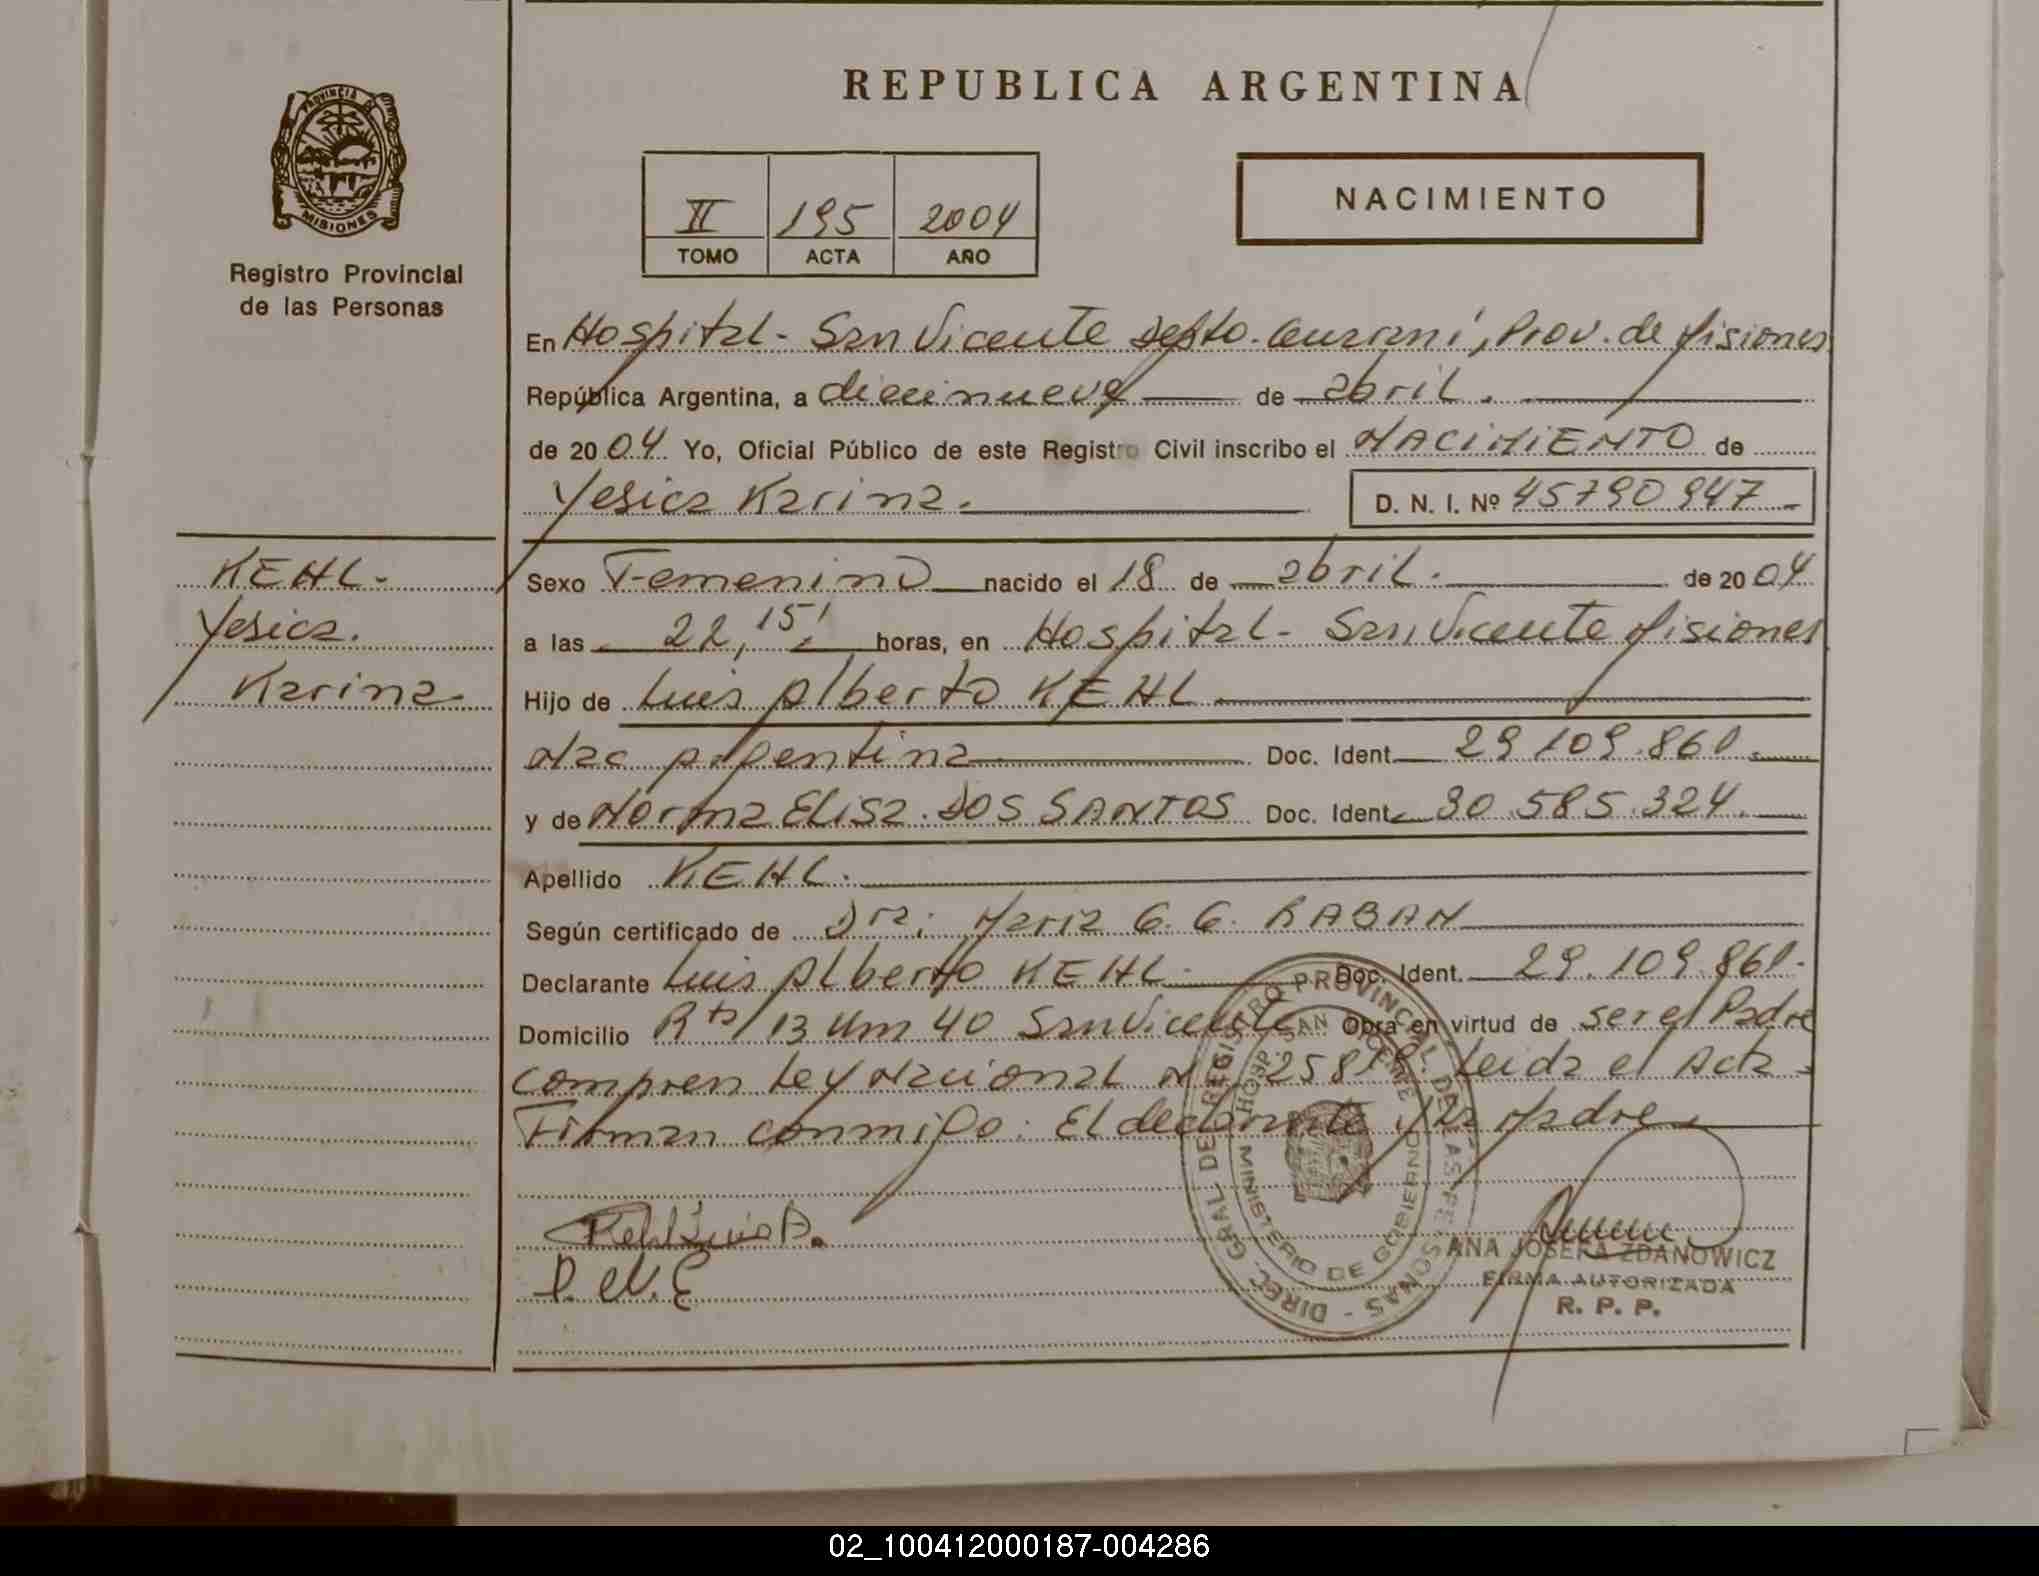 PROVINCIA DE
MISIONES
Registro Provincial
de las Personas
KEHL.
Yesica.
Karina.
REPUBLICA ARGENTINA
II 195 2004
TOMO ACTA AÑO
NACIMIENTO
En Hospital - San Vicente Depto. Guarani, Prov. de Misiones
República Argentina, a diecinueve de abril.
de 2004 Yo, Oficial Público de este Registro Civil inscribo el NACIMIENTO de
Yesica Karina. D. N. I. Nº 45790947
Sexo Femenino nacido el 18 de abril. de 2004
a las 22,15' horas, en Hospital - San Vicente Misiones
Hijo de Luis Alberto KEHL
Nac Argentina Doc. Ident. 29.109.860.
y de Norma Elisa. DOS SANTOS Doc. Ident. 30.585.324.
Apellido KEHL.
Según certificado de Dra; Maria G. G. RABAN
Declarante Luis Alberto KEHL. Doc. Ident. 29.109.860.
Domicilio Rta 13 Km 40 San Vicente Obra en virtud de ser el Padre
Compren Ley Nacional Nº 25819. Leida el Acta
Firman conmigo: El declarante y la Madre
Kehl Luis A.
D. N. E
DIREC. GRAL. DE REGISTRO PROVINCIAL DE LAS PERSONAS -
HOSP. SAN VICENTE
MINISTERIO DE GOBIERNO
ANA JOSEFA ZDANOWICZ
FIRMA AUTORIZADA
R. P. P.
02_100412000187-004286